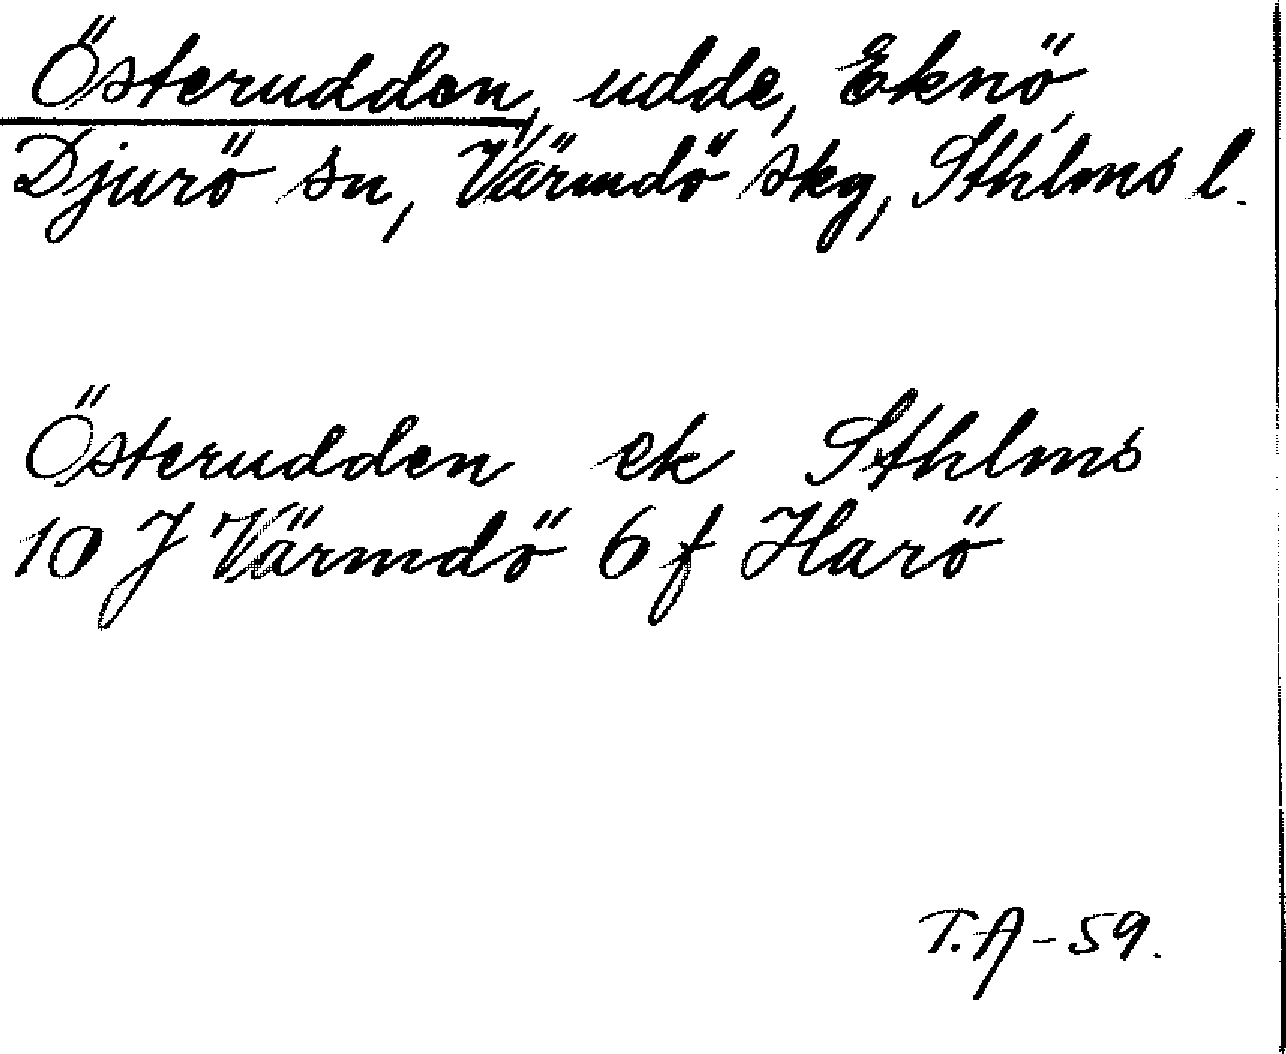 Österudden, udde, Eknö,
Djurö sn, Värmdö skg, Sthlms l.
Österudden ek Sthlms
10 J Värmdö 6 f Harö
T.A-59.